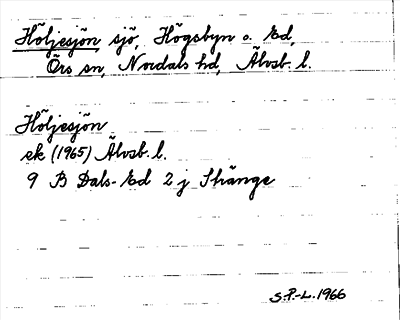 Höljesjön, sjö, Högsbyn o. Ed,
Örs sn, Nordals hd, Älvsb. l.
Höljesjön
ek (1965) Älvsb. l.
9 B Dals-Ed 2 j Stränge
S.P.-L. 1966